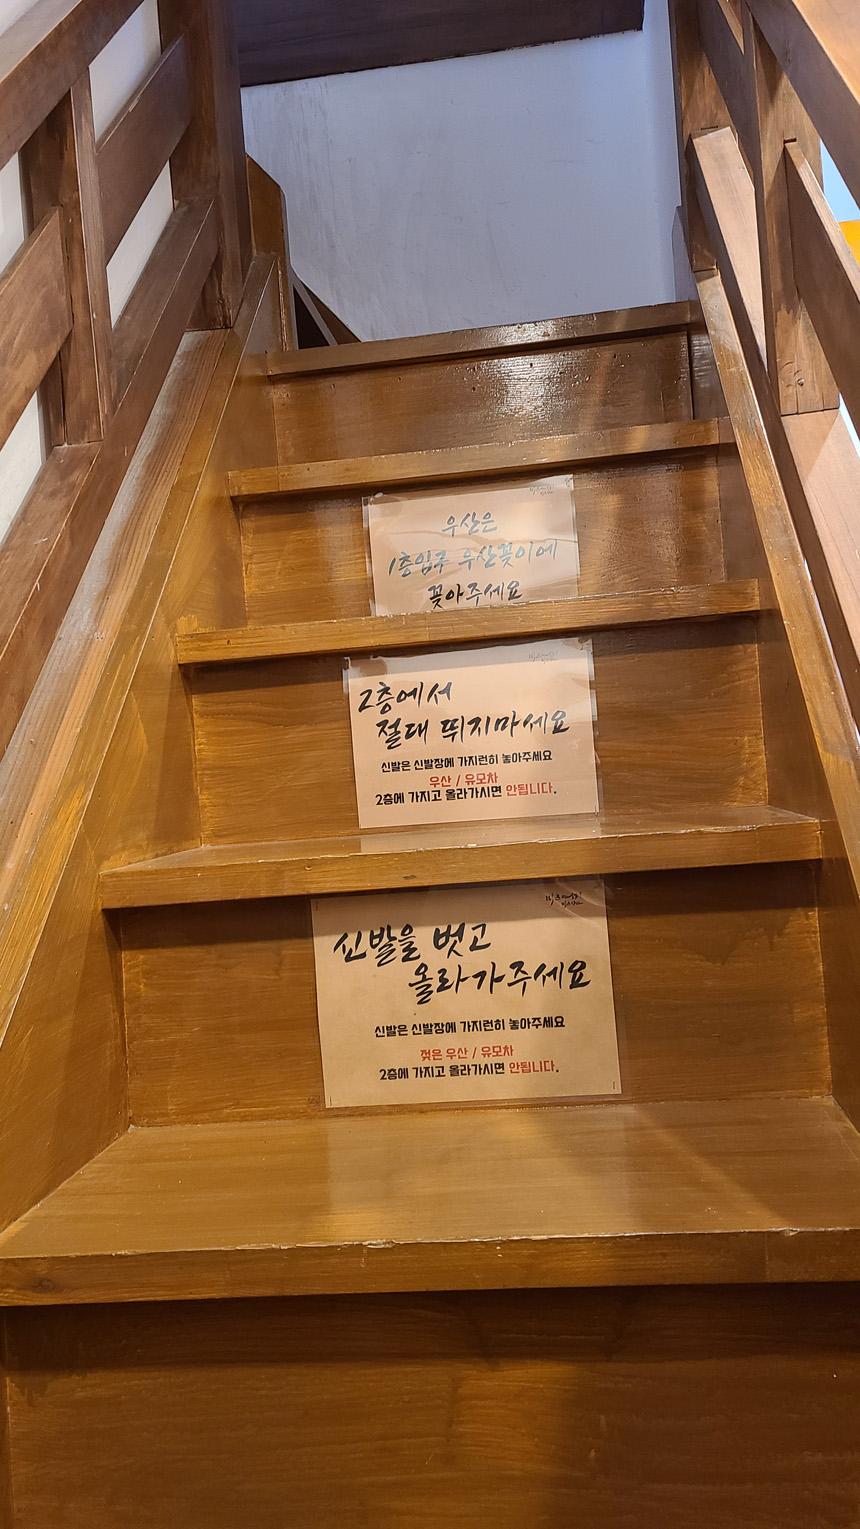 우산은
1층입구 우산꽂이에
꽂아주세요
2층에서
절대 뛰지마세요
신발은 신발장에 가지런히 놓아주세요
우산 / 유모차
2층에 가지고 올라가시면 안됩니다.
신발을 벗고
올라가주세요
신발은 신발장에 가지런히 놓아주세요
젖은 우산 / 유모차
2층에 가지고 올라가시면 안됩니다.